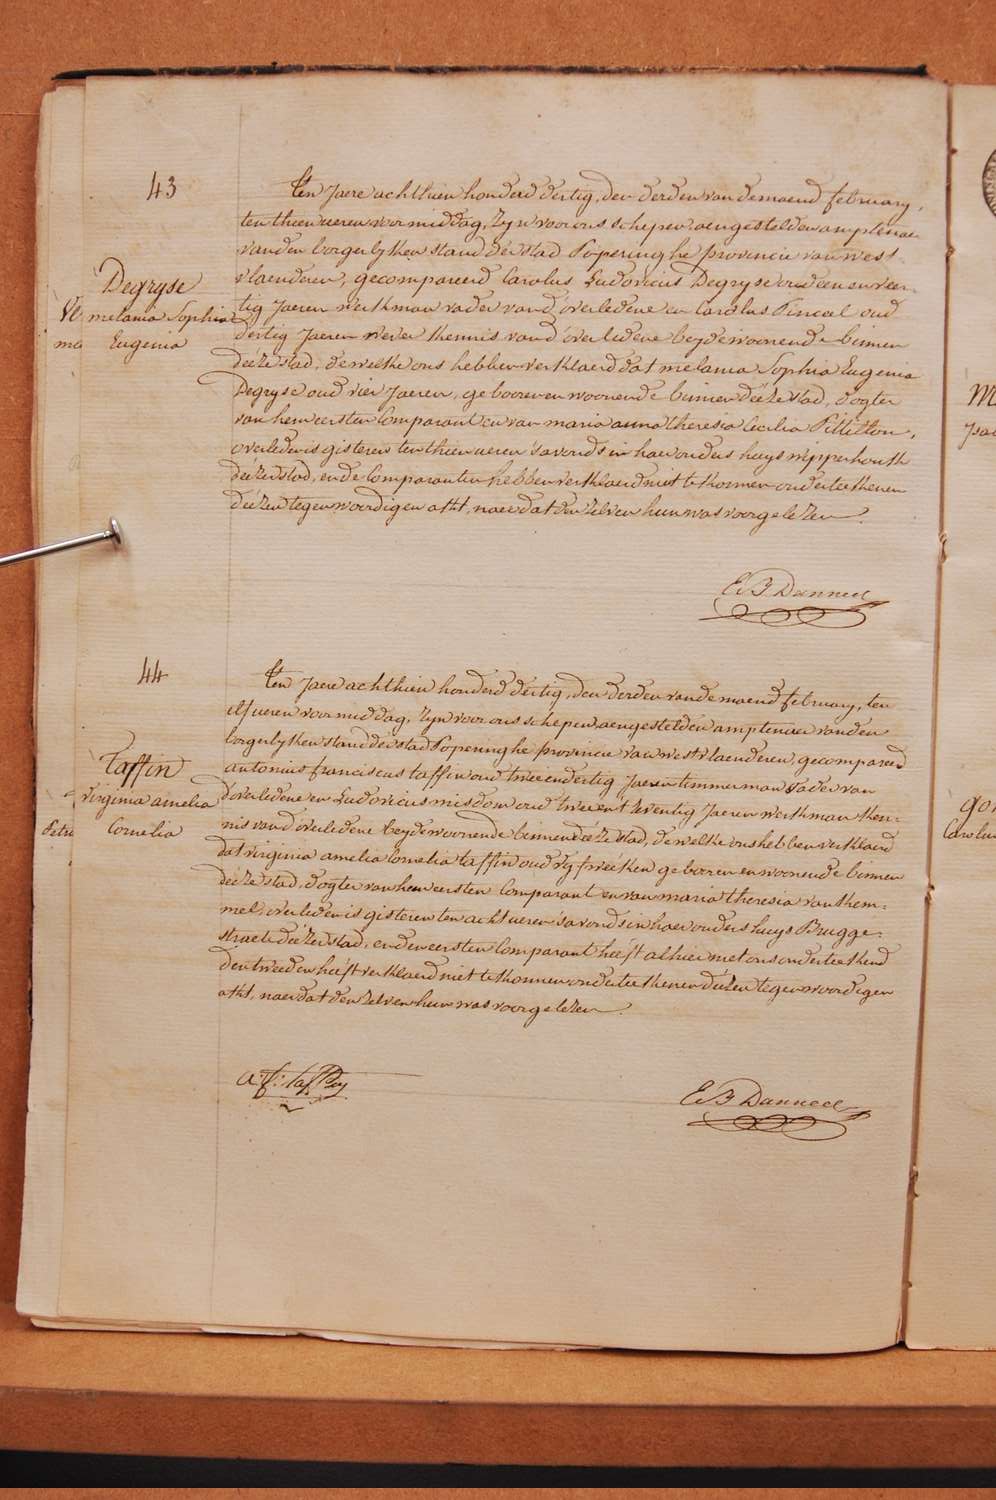 43
Degryse
melania Sophia
Eugenia
ten Jaere achthien honderd dertig, den derden van de maend february,
ten thien ueren voormiddag, zyn voor ons schepen, aengestelden amptenaer
van den borgerlyken stand der stad Poperinghe provincie van west
vlaenderen, gecompareerd Carolus Ludovicus Degryse oud een en veer-
tig Jaeren werkman vader van d'overledene en Carolus Pinceel oud
dertig Jaeren wever kennis van d'overledene beyde woonende binnen
deeze stad, de welke ons hebben verklaerd dat melania Sophia Eugenia
Degryse oud vier Jaeren, gebooren en woonende binnen deeze stad, dogter
van hem eersten Comparant en van maria anna theresia Cecilia Pittillon,
overleden is gisteren ten thien ueren s'avonds in haer ouders huys nipperhoutk
deezer stad, en de Comparanten hebben verklaerd niet te konnen onderteekenen
deezen tegenwoordigen akt, naer dat den zelven hun was voorgelezen.
E B Danneel
44
taffin
virginia amelia
Cornelia
ten Jaere achthien honderd dertig, den derden van de maend february, ten
elf ueren voormiddag, zyn voor ons schepen, aengestelden amptenaer van den
borgerlyken stand der stad Poperinghe provincie van westvlaenderen, gecompareerd
antonius franciscus taffin oud twee en dertig Jaeren timmerman vader van
d'overledene en Ludovicus misdom oud twee en t'zeventig Jaeren werkman ken-
nis van d'overledene beyde woonende binnen deeze stad, de welke ons hebben verklaerd
dat virginia amelia Cornelia taffin oud vyf weeken gebooren en woonende binnen
deeze stad, dogter van hem eersten Comparant en van maria theresia van kem-
mel, overleden is gisteren ten acht ueren s'avonds in haer ouders huys Brugge-
straete deezer stad, en den eersten Comparant heeft alhier met ons onderteekend
den tweeden heeft verklaerd niet te konnen onderteekenen deezen tegenwoordigen
akt, naer dat den zelven hun was voorgelezen.
E B Danneel